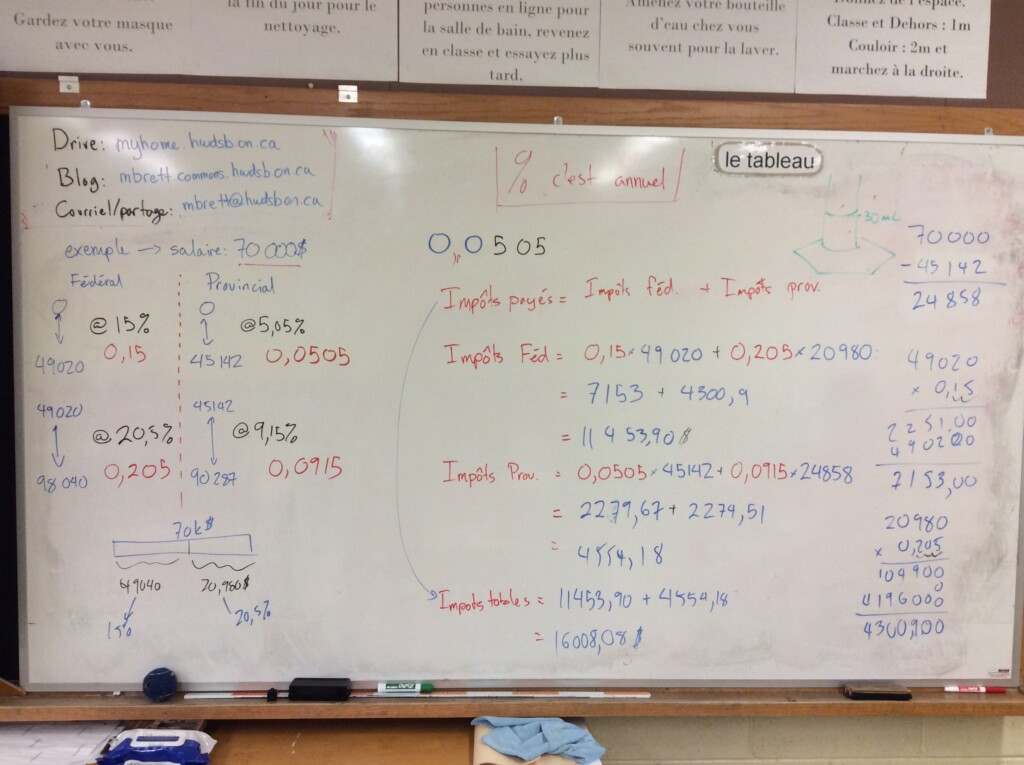 Gardez votre masque
avec vous.
la fin du jour pour le
nettoyage.
personnes en ligne pour
la salle de bain, revenez
en classe et essayez plus
tard.
Amenez votre bouteille
d'eau chez vous
souvent pour la laver.
Donnez de l'espace.
Classe et Dehors : 1m
Couloir : 2m et
marchez à la droite.
Drive: myhome.hwdsb.on.ca
Blog: mbrett.commons.hwdsb.on.ca
Courriel/partage: mbrett@hwdsb.on.ca
% c'est annuel
le tableau
30 mL
exemple → salaire: 70 000$
Fédéral
0
@ 15%
49020
0,15
49020
@ 20,5%
98040
0,205
Provincial
0
@ 5,05%
45142
0,0505
45142
@ 9,15%
90287
0,0915
70k$
49040
20,980$
15%
20,5%
0,0505
Impôts payés = Impôts féd. + Impôts prov.
Impôts Féd = 0,15 × 49020 + 0,205 × 20980
= 7153 + 4300,9
= 11 453,90$
Impôts Prov. = 0,0505 × 45142 + 0,0915 × 24858
= 2279,67 + 2274,51
= 4554,18
Impots totales = 11453,90 + 4554,18
= 16008,08$
70000
- 45142
24858
49020
× 0,15
2251,00
490200
7153,00
20980
× 0,205
104900
0
4196000
4300,900